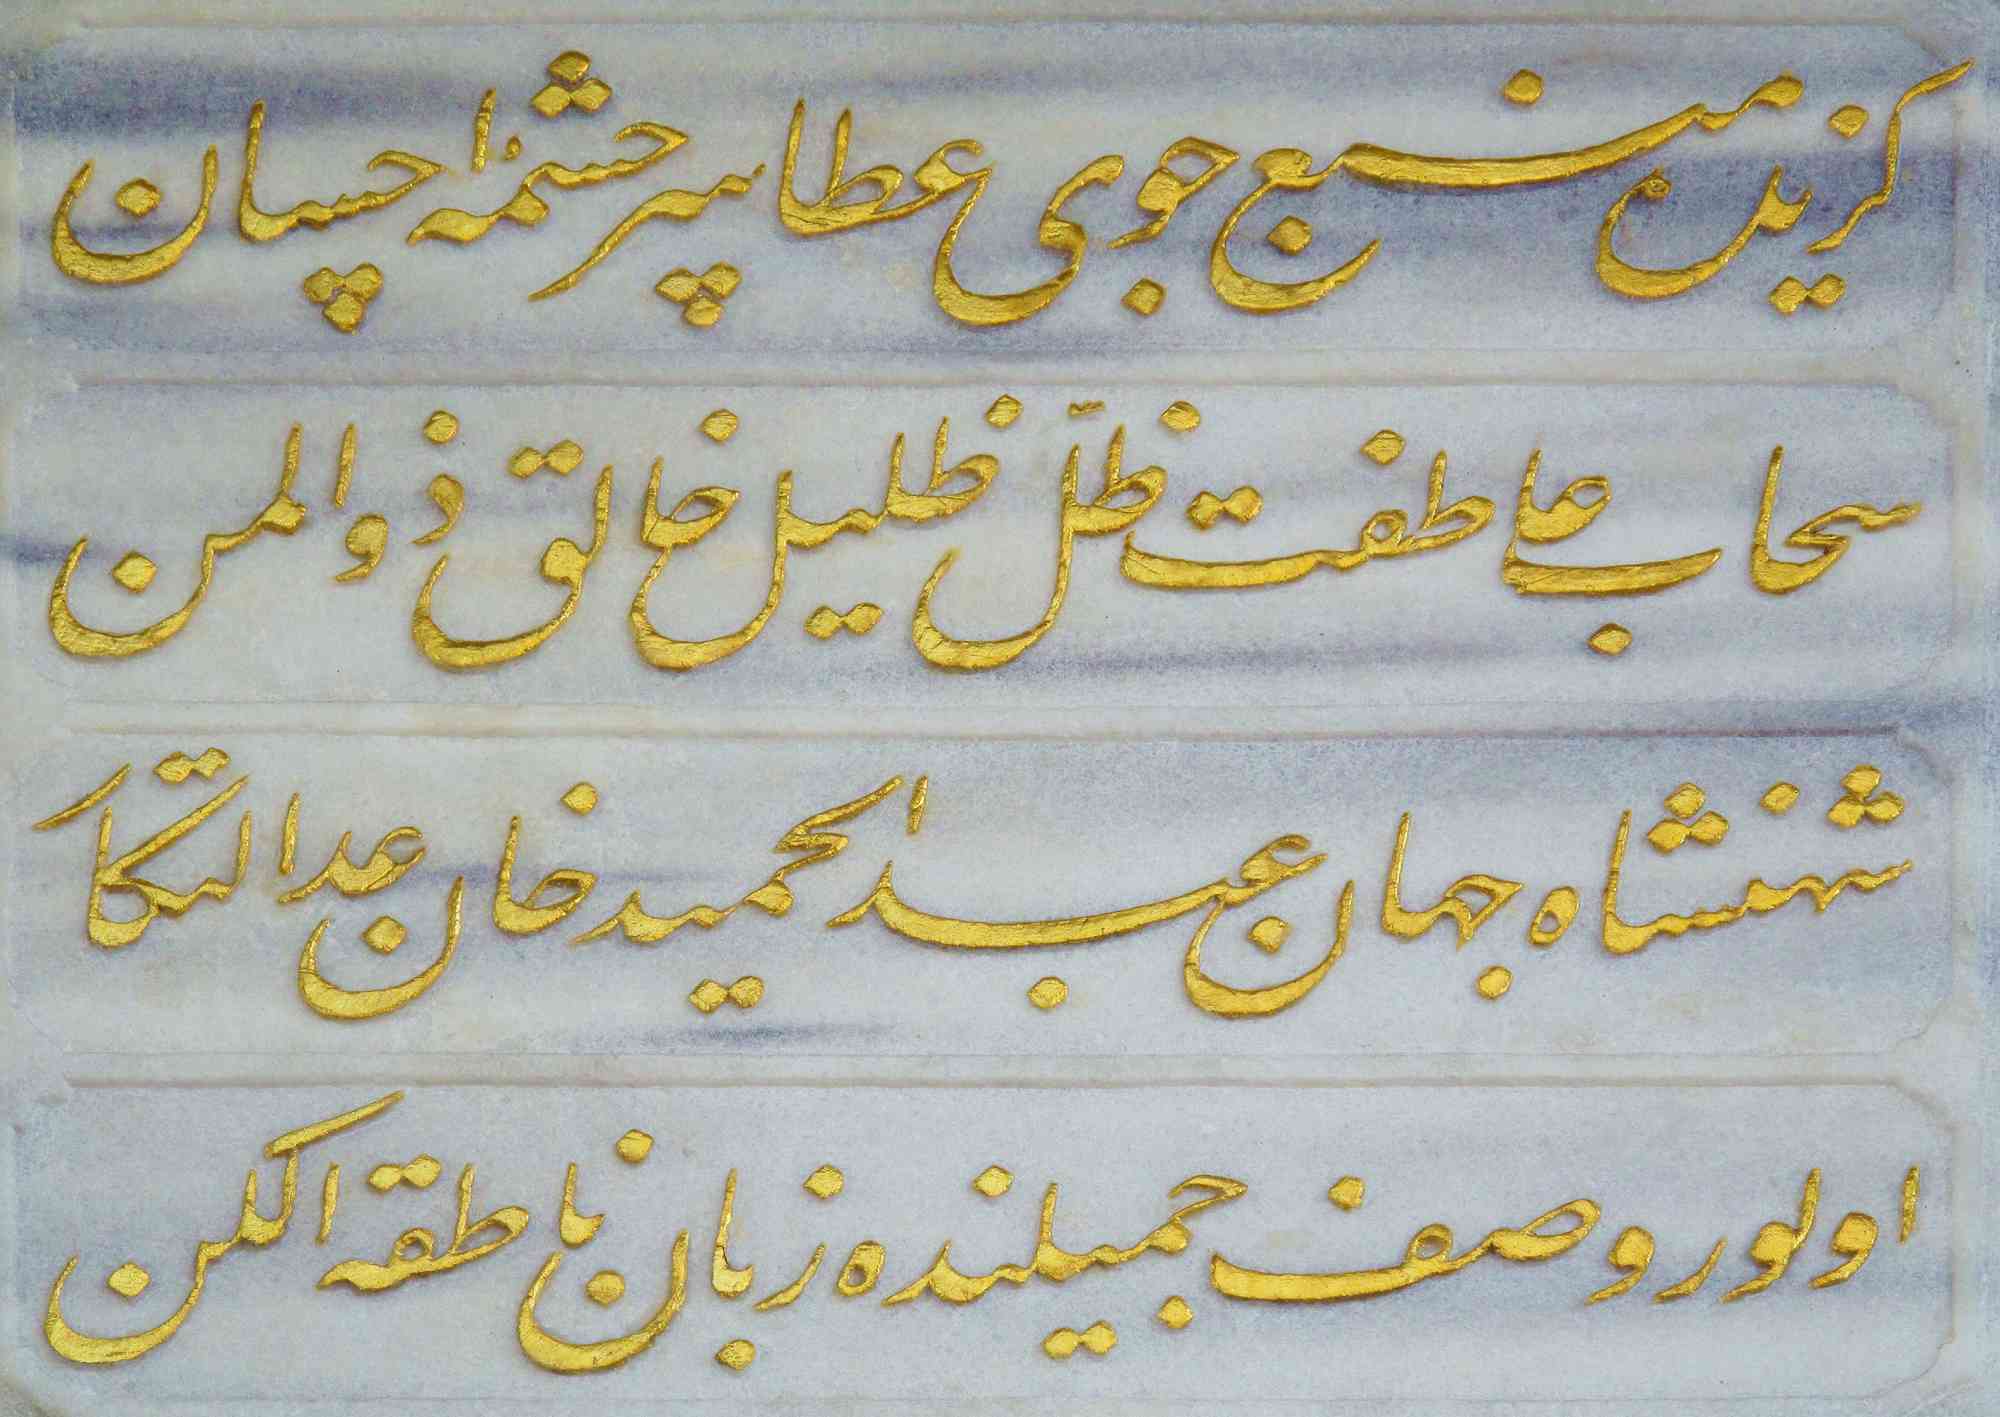 كزين منبع جوی عطا سر چشمهٔ احسان
سحاب عاطفت ظلّ ظليل خالق ذو المنن
شهنشاه جهان عبد الحميد خان عدالتكار
اولور وصف جميلنده زبان ناطقه الكن